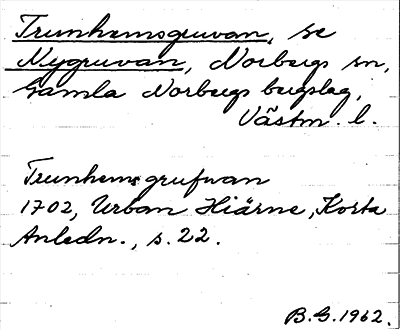 Trunhemsgruvan, se
Nygruvan, Norbergs sn,
Gamla Norbergs bergslag,
Västm. l.
Trunhemsgrufvan
1702, Urban Hiärne, Korta
Anledn., s. 22.
B.G. 1962.